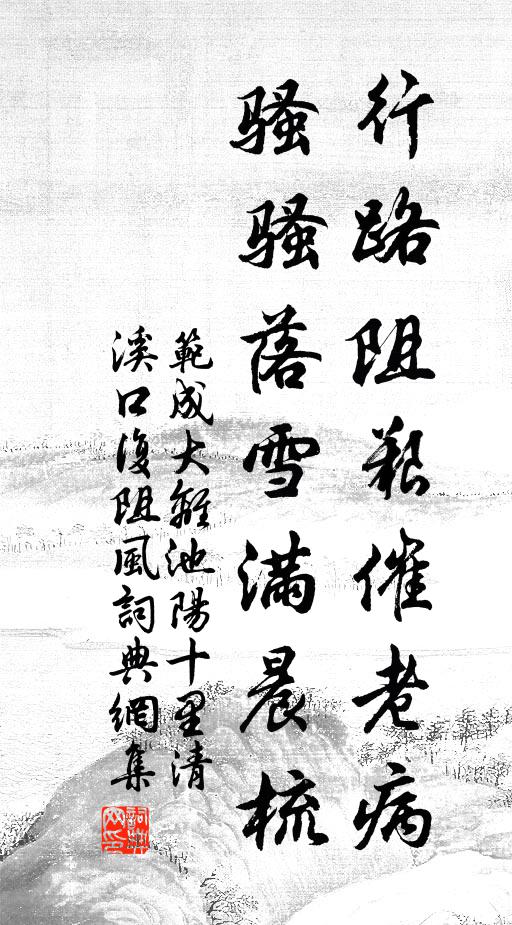 行路阻艱催老病
騷騷落雪滿晨梳
範成大離池陽十里清
溪口復阻風詞典網集